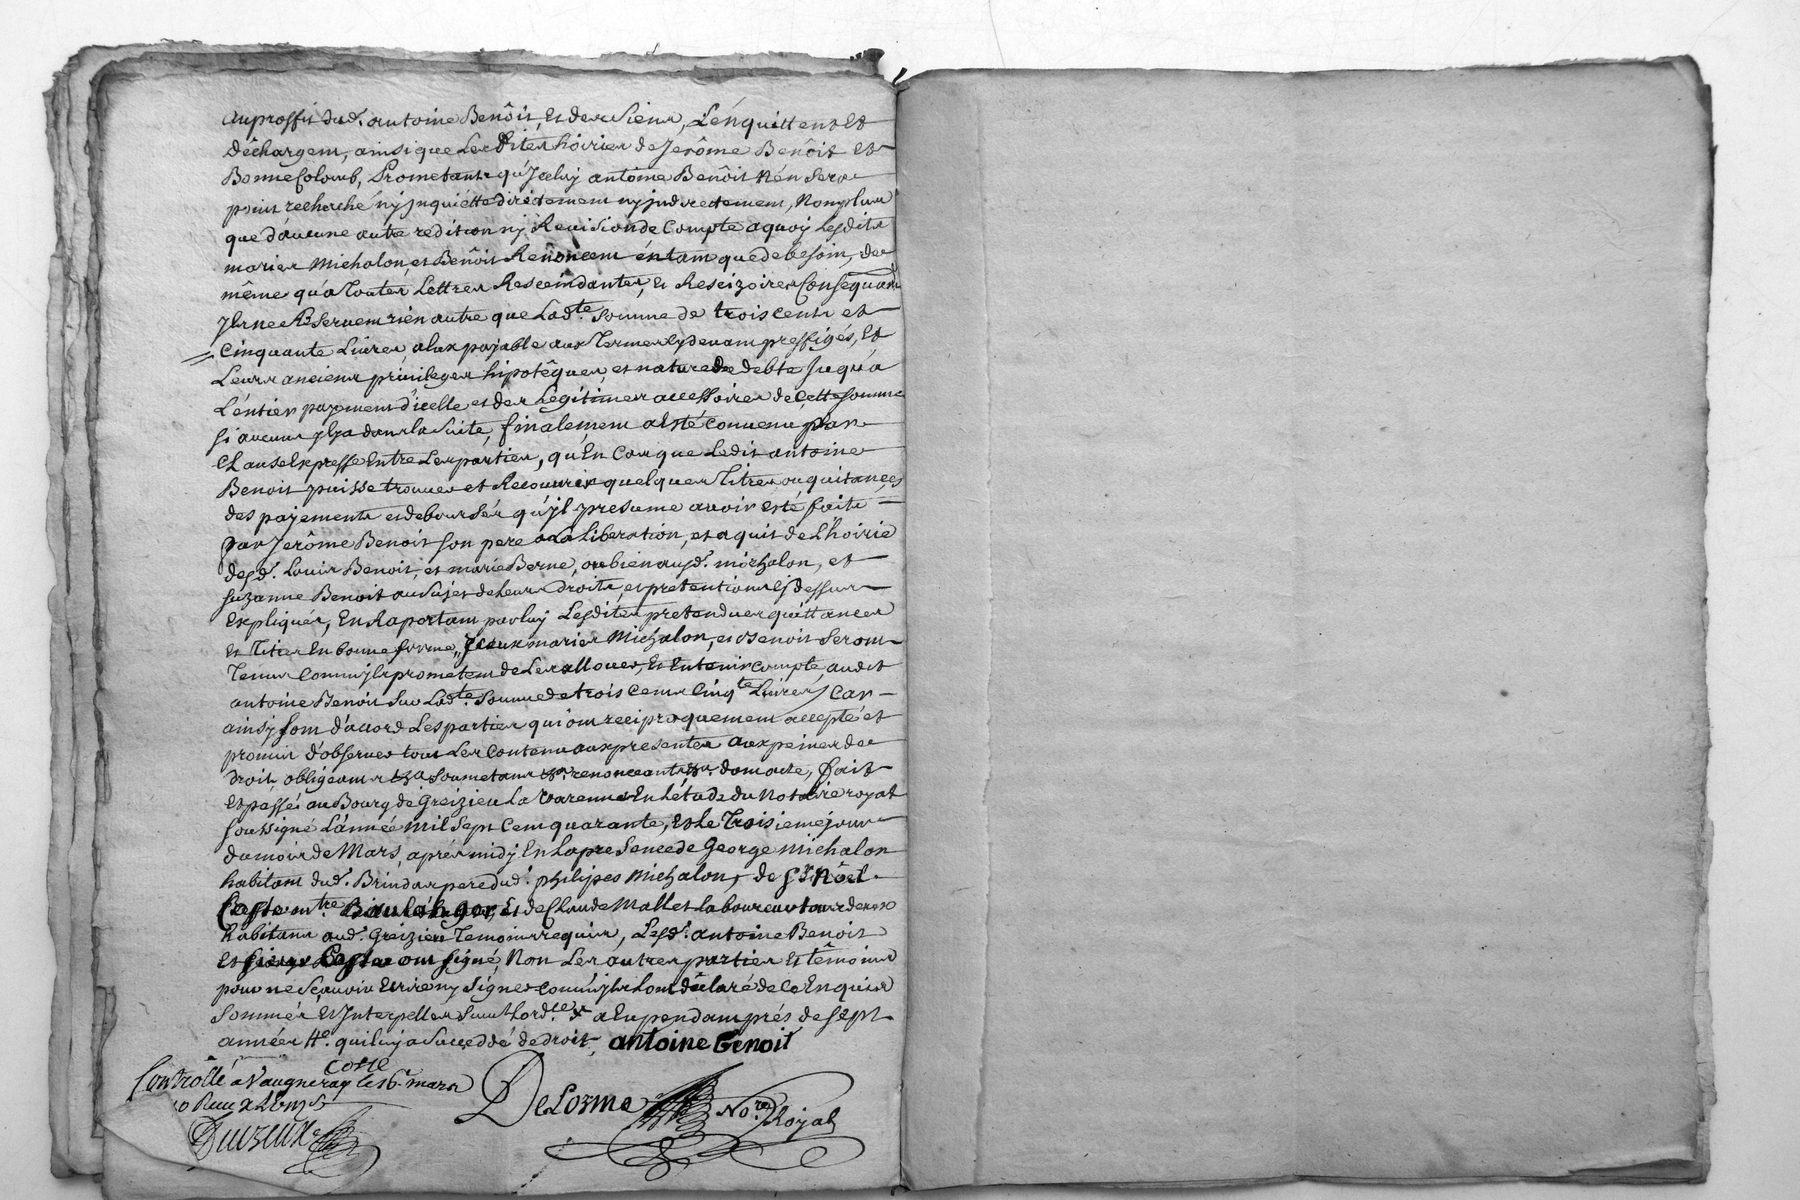 auproffit dud. antoine Benôit, Et des siens, L'énquittent Et
déchargent, ainsi que Lesdites hoiries de Jerôme Benôit Et
Bonne Colomb, Prometants qu'Jceluy antôine Benôit N'en sera
point recherché ny jnquiétté diréctement ny jndirectement, Nonplus
que d'aucune autre redition ny Revision de Compte a quoy Lesdits
maries Michalon, et Benôit Renoncent éntant que de besoin, de
même qu'a toutes Lettres Rescindantes, Et Rescizoires Consequant
Jls ne Reservent rien autre que Ladte. Somme de trois cents et
Cinquante Livres, a Eux payable aux Termes cy devant preffigés, Et
Leurs anciens privileges hipotêques, et nature de debte jusqu'a
L'éntier payement d'icelle et des Légitimes accessoires de Cette somme
si aucuns jl y a dans la suite, finalement a Esté Convenu par
Clause Expresse Entre Les parties, qu'En Cas que Ledit antoine
Benoit puisse trouver et Recouvrir quelques Titres ou quitances
des payements et debourses qu'jl presume avoir esté faits
par Jerôme Benoit son pere a La Liberation, et aquit de L'hoirie
desd. Louis Benoit, et marie Berne, ou bien ausd. michalon, et
suzanne Benoit au sujet de Leurs droits, et pretentions cy dessus
Expliqués, En Raportant par luy Lesdites pretendues quittances
Et Titres En bonne forme, Jceux maries Michalon, et Benoit Seront
Tenus Comm'jls promettent de Les allouer, Et En tenir compte, audit
antoine Benoit sur Ladte. Somme de trois Cents Cinqte Livres, Car
ainsy sont d'acord Les parties qui ont reciproquement accepté et
promis d'observer tout Le Contenu aux presentes aux peines de
droit, obligeants &a soumetans &a renonceants &a. dont acte, fait
Et passé au Bourg de Greizieu La Varenne En L'étude du Notaire royal
soussigné L'année mil sept cent quarante, Et Le Troisieme jour
du mois de Mars, aprés midy En La presence de George Michalon
habitant dud. Brindas pere dud. philipes Michalon, de Sr. Nôel
Coste mtre Boulanger, Et de Claude Mallet Laboureur tous deux
habitans aud. Greizieu Temoins requis, Lesd. antoine Benoit
Et sieur Coste ont signé, Non Les autres parties Et têmoins
pour ne Sçavoir Ecrire ny Signer Comm'jls L'ont déclaré de Ce Enquis
Sommés Et Interpellés suivt L'ordce. a Eu pendant prés de sept
années qui luy a succeddé de droit, antoine Benoit
Coste
Controllé a Vaugneray le 16. mars
DeLorme No.re Royal